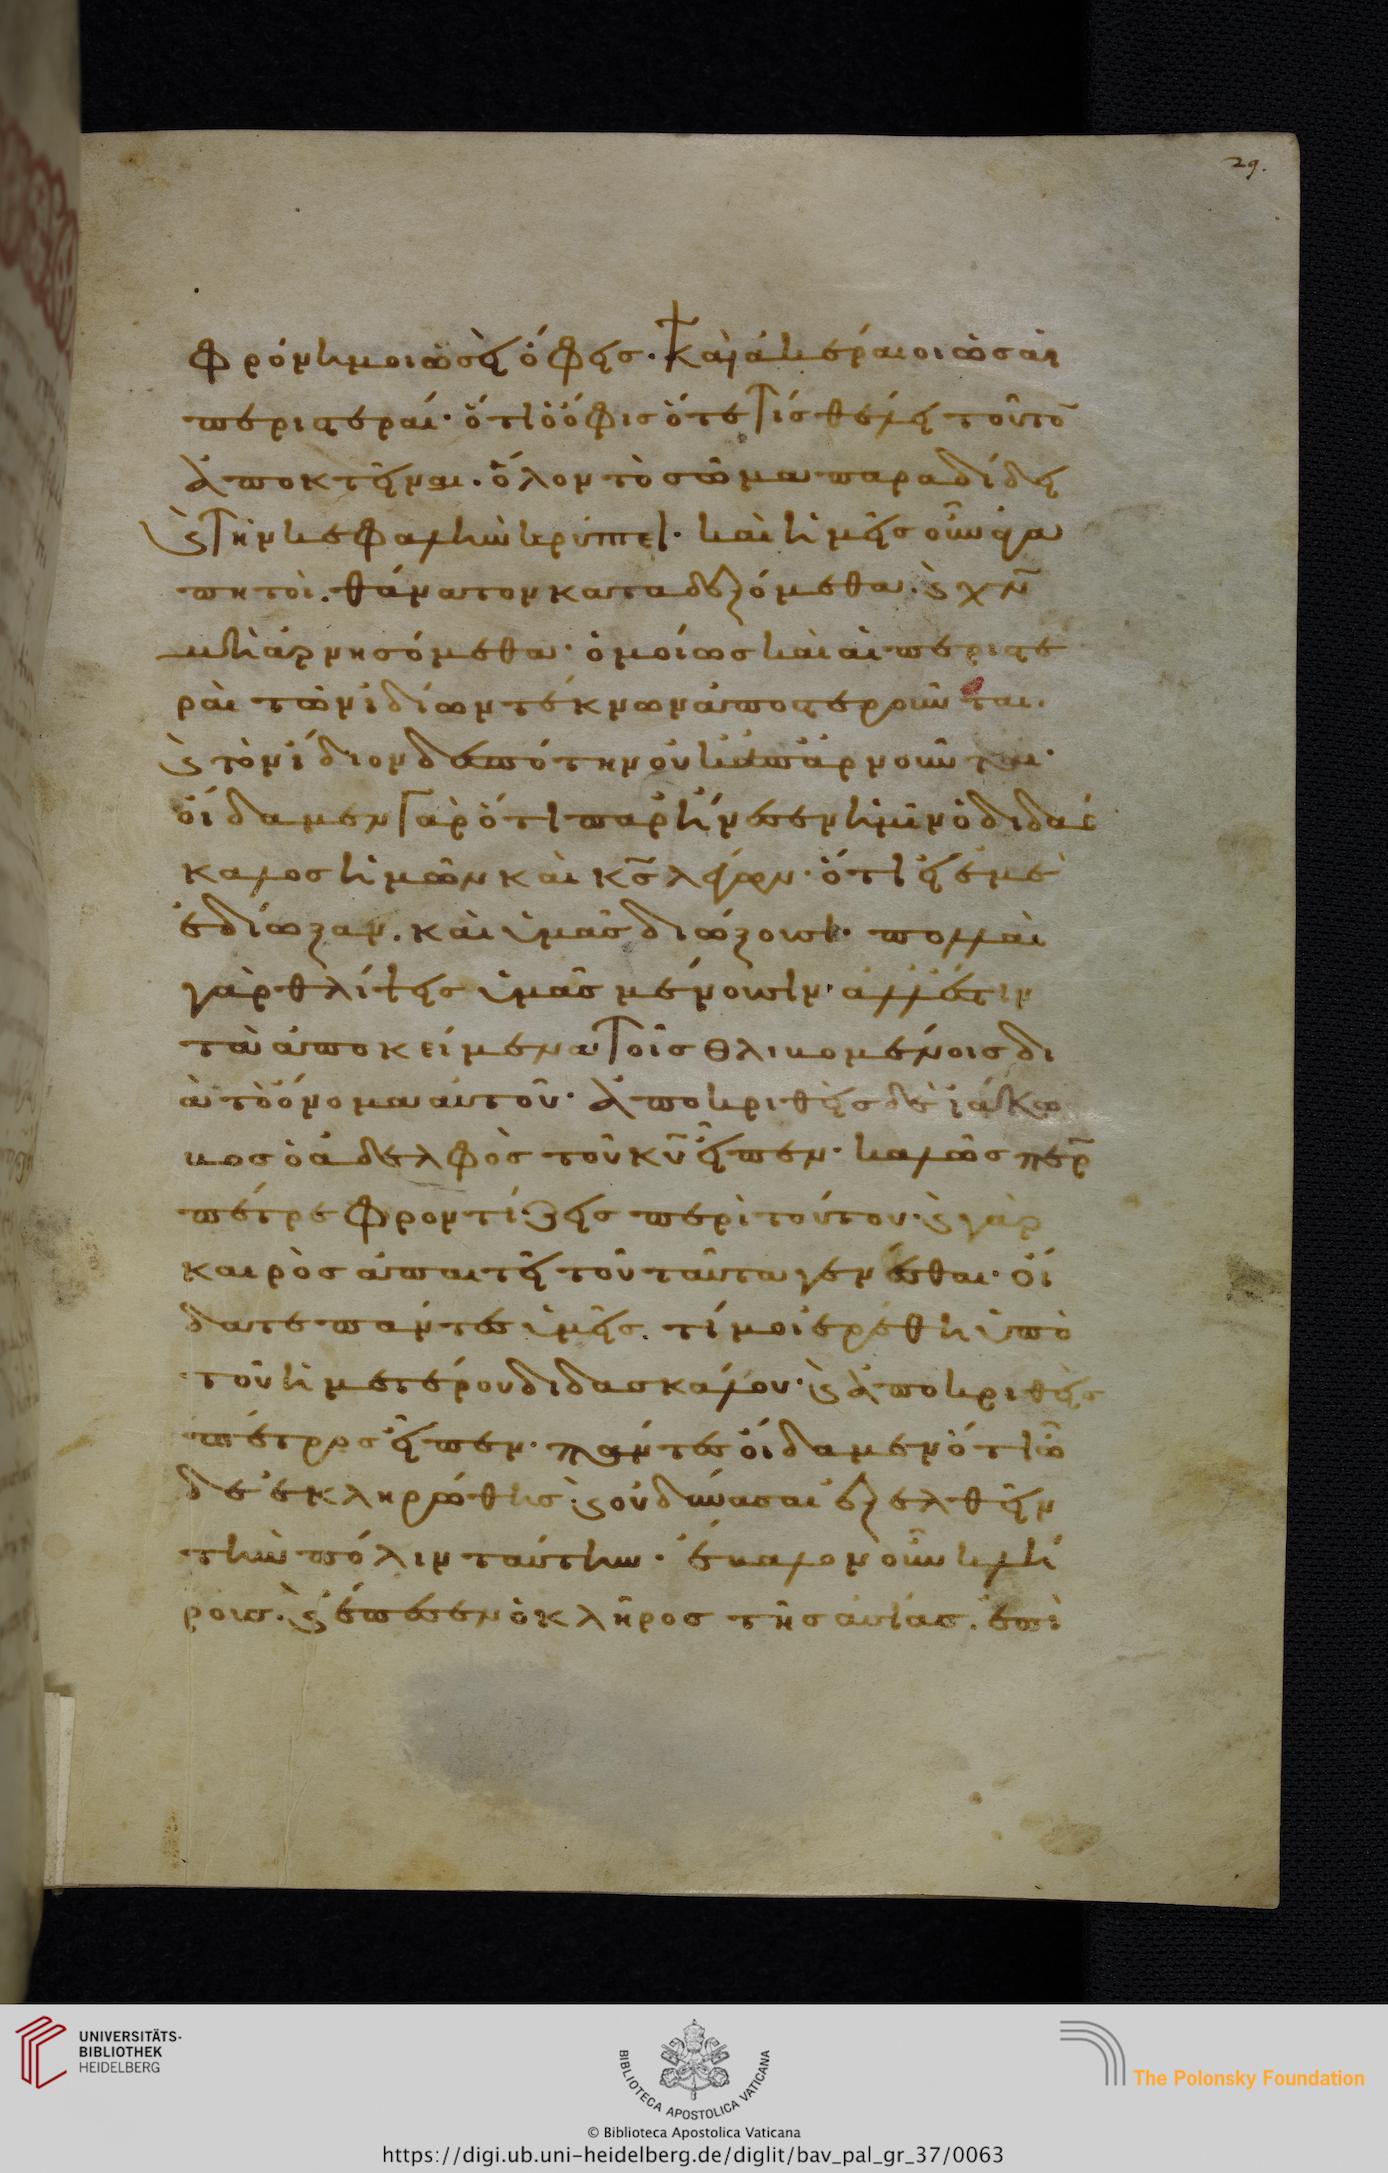 29.
φρόνημοι ὡσεὶ ὄφεις· καὶ ἀκέραιοι ὡσαὶ
περιστεραί· ὅτι ὁ ὄφις ὅτέ τίς θέλει τοῦτο̅
ἀποκτεῖναι. ὅλον τὸ σῶμα παραδίδει
ϗ τὴν κεφαλὴν κρύπτει· καὶ ἡμεῖς οὖν ἀγα
πητοὶ. θάνατον καταδεξόμεθα. ϗ χν̅
μὴ ἀρνησόμεθα· ὁμοίως καὶ αἱ περιστε
ραὶ τῶν ἰδίων τέκνων ἀποστεροῦνται.
ϗ τὸν ἴδιον δεσπότην οὐκ ἀπαρνοῦνται·
οἴδαμεν γὰρ ὅτι παρήνεσεν ἡμῖν ὁ διδάσ
καλος ἡμῶν καὶ κς̅ λέγων· ὅτι εἰ ἐμὲ
ἐδίωξαν. καὶ ὑμᾶς διώξουσι· πολλαὶ
γὰρ θλίψεις ὑμᾶς μένουσιν· ἀλλ' ἔστιν
τὰ ἀποκείμενα τοῖς θλιβομένοις δι
ὰ τὸ ὄνομα αὐτοῦ· ἀποκριθεὶς δὲ ἰάκω
βος ὁ ἀδελφὸς τοῦ κυ̅ εἶπεν· καλῶς περ̅
πέτρε φροντίζεις περὶ τούτου· ϗ γὰρ
καιρὸς ἀπαιτεῖ τοῦ ταῦτα γενέσθαι· οἴ
δατε πάντες ὑμεῖς. τί μοι ἐρέθη ὑπὸ
τοῦ ἡμετέρου διδασκάλου· ϗ ἀποκριθεὶς
πέτρος εἶπεν· πάντες οἴδαμεν ὅτι ὧ
δε ἐκληρώθης. ϗ οὐ δύνασαι ἐξελθεῖν
τὴν πόλιν ταύτην· ἔβαλον οὖν κλή
ρους. ϗ ἔπεσεν ὁ κλῆρος τῆς ἀσίας. ἐπὶ
UNIVERSITÄTS-
BIBLIOTHEK
HEIDELBERG
BIBLIOTECA APOSTOLICA VATICANA
The Polonsky Foundation
© Biblioteca Apostolica Vaticana
https://digi.ub.uni-heidelberg.de/diglit/bav_pal_gr_37/0063